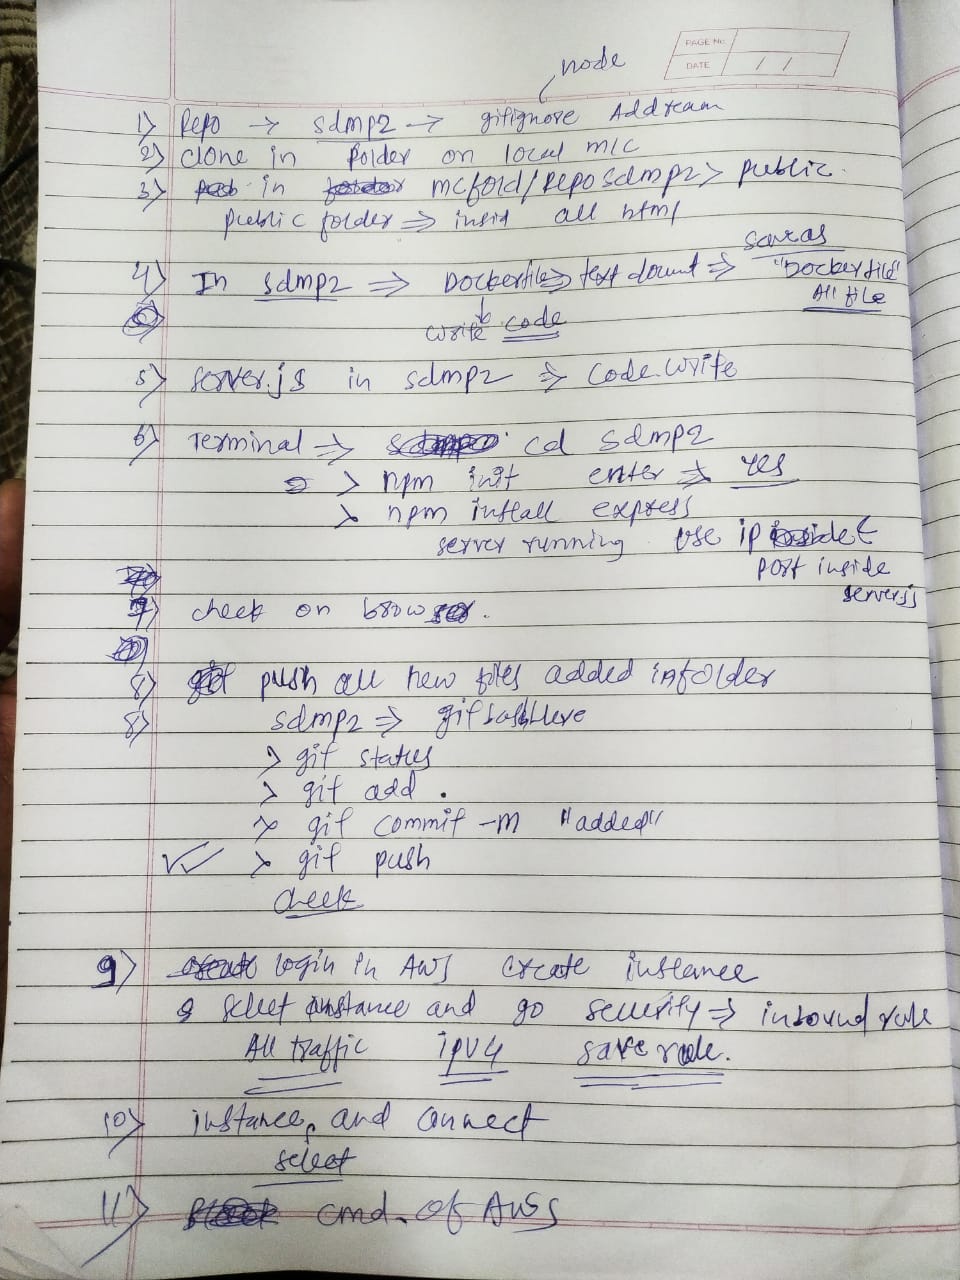 PAGE No.
DATE / /
node
1) Repo → sdmp2 → gitignore Addream
2) clone in folder on local m/c
3) in mcfold/repo sdmp2 > public.
public folder ⇒ insid all html
4) In sdmp2 ⇒ Dockerfile ⇒ text ⇒ save as "Dockerfile"
All file
write code
5) server.js in sdmp2 ⇒ code write
6) Terminal ⇒ cd sdmp2
> npm init enter ⇒ yes
> npm install express
server running use ip
port inside
serverjs
7) check on browser.
8) push all new files added in folder
8) sdmp2 ⇒ gitbashHere
> git status
> git add .
> git commit -m "added"
> git push
check
9) login in AWS create instance
select instance and go security ⇒ inbound rule
All traffic ipv4 save rule.
10) instance, and connect
select
11) cmd. of AWS